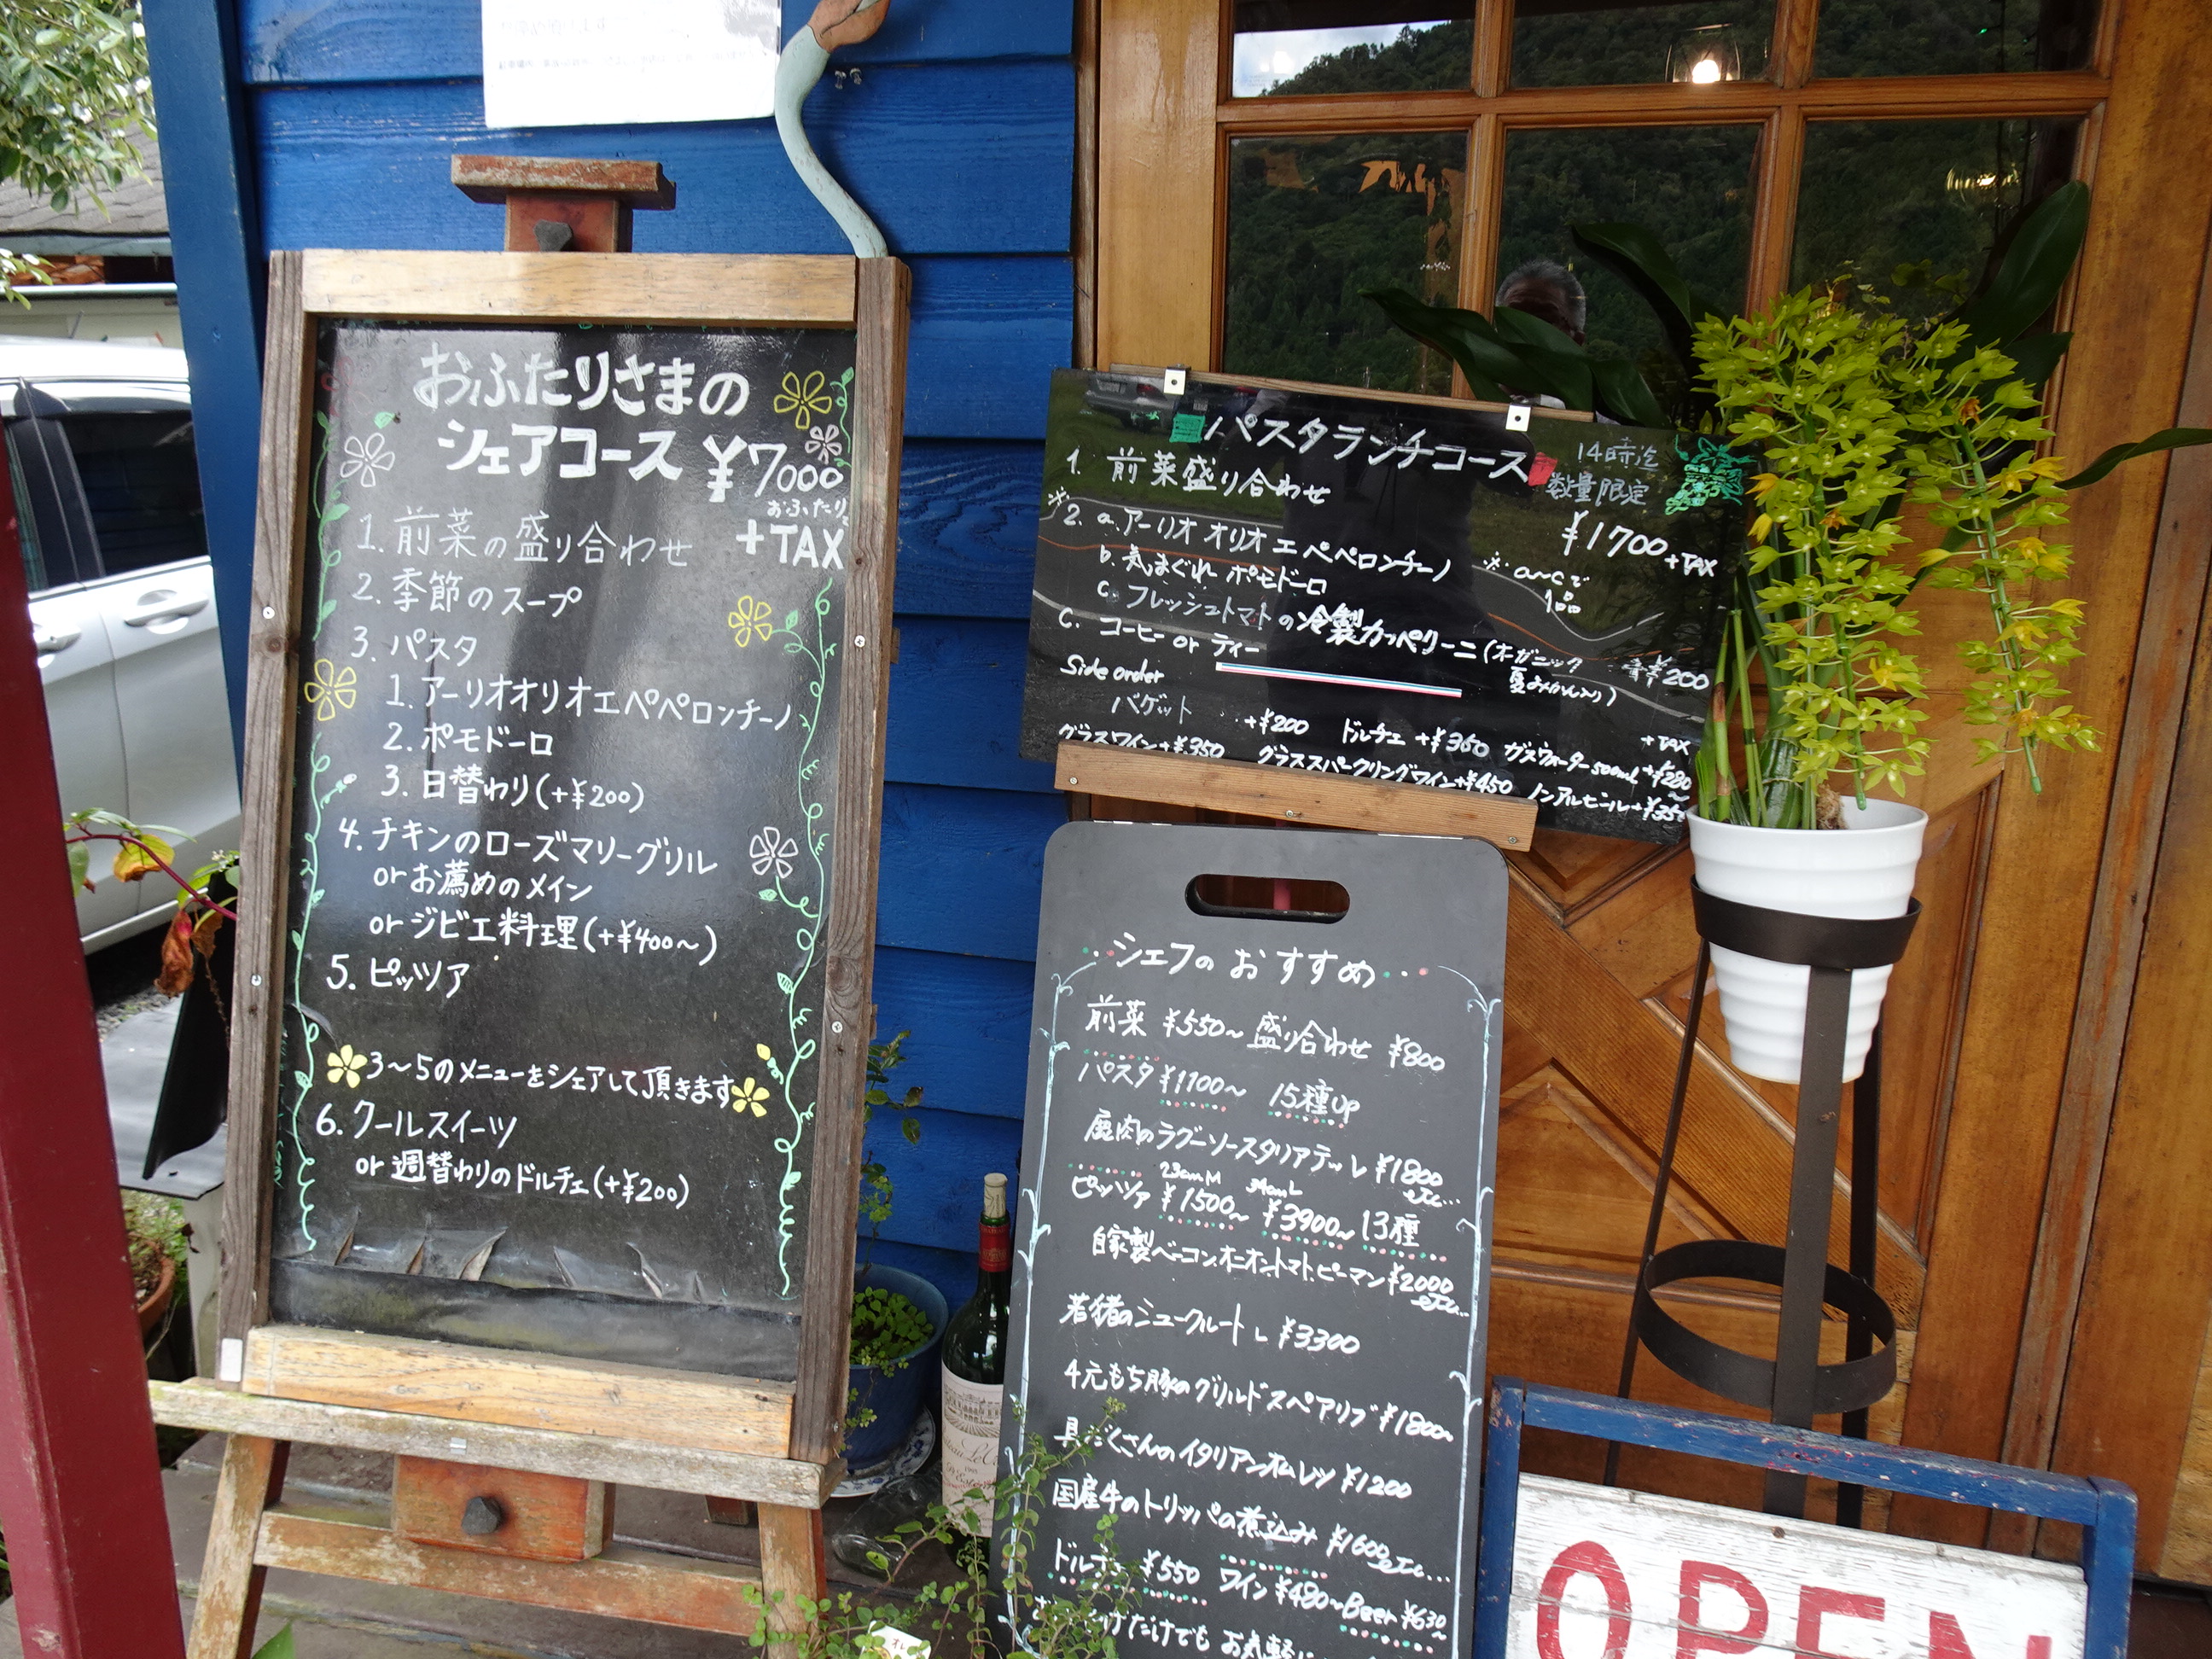 おふたりさまの
シェアコース ¥7000
おふたり
+TAX
1. 前菜の盛り合わせ
2. 季節のスープ
3. パスタ
1. アーリオオリオエペペロンチーノ
2. ポモドーロ
3. 日替わり(+¥200)
4. チキンのローズマリーグリル
or お薦めのメイン
or ジビエ料理(+¥400〜)
5. ピッツァ
3〜5のメニューをシェアして頂きます
6. クールスイーツ
or 週替わりのドルチェ(+¥200)
パスタランチコース
14時迄
数量限定
¥1700+TAX
1. 前菜盛り合わせ
※
2. a. アーリオ オリオ エ ペペロンチーノ
※a〜cで
1品
b. 気まぐれ ポモドーロ
c. フレッシュトマトの冷製カッペリーニ(オーガニック
夏みかん入り)
¥200
C. コーヒー or ティー
Side order
+TAX
バゲット ‥+¥200 ドルチェ +¥360 ガスウォーター500ml +¥280
グラスワイン+¥350 グラススパークリングワイン+¥450 ノンアルビール+¥35
シェフの おすすめ
前菜 ¥550〜 盛り合わせ ¥800
パスタ ¥1100〜 15種up
鹿肉のラグーソースタリアテッレ ¥1800
etc...
23cm M 34cm L
ピッツァ ¥1500〜 ¥3900〜 13種
自家製ベーコン、オニオン、トマト、ピーマン ¥2000
etc...
若猪のシュークルート ¥3300
4元もち豚のグリルドスペアリブ ¥1800
具だくさんのイタリアンオムレツ ¥1200
国産牛のトリッパの煮込み ¥1600 etc...
¥550 ワイン ¥480〜 Beer ¥630
だけでも お気軽に
OPEN